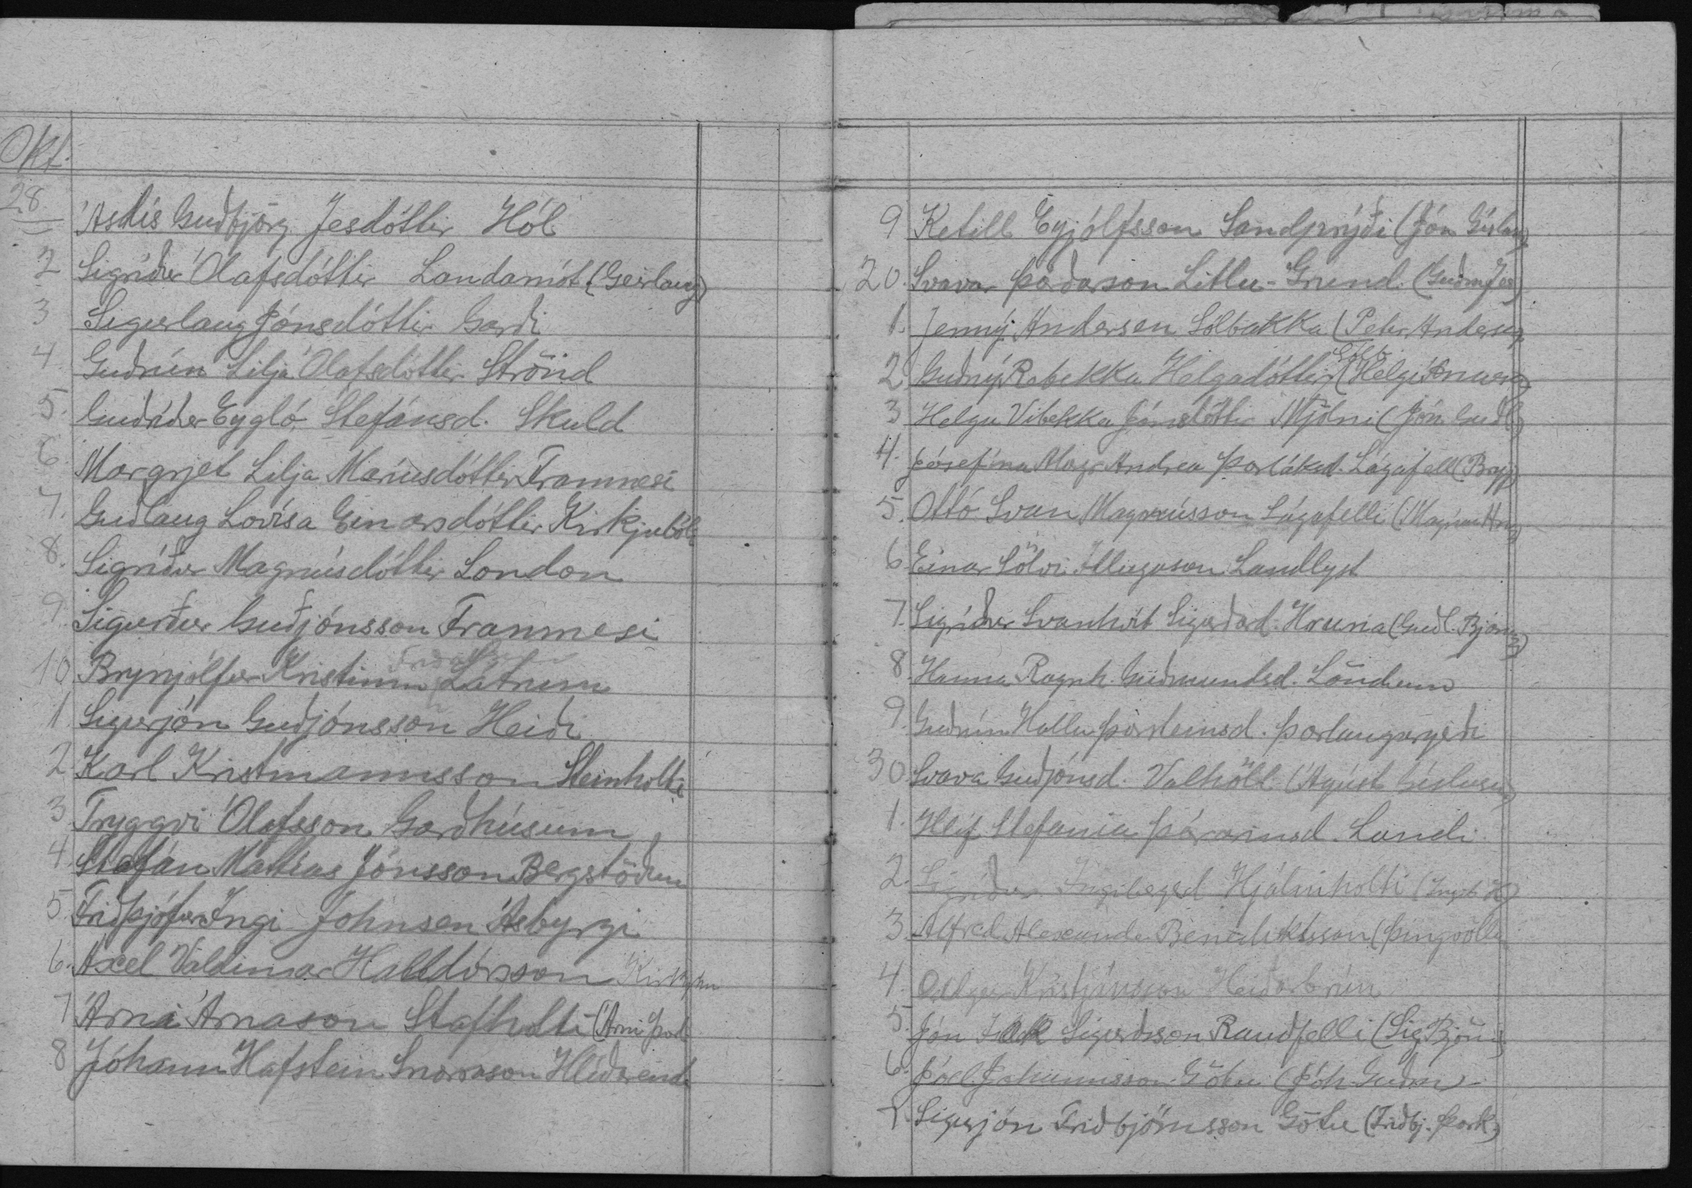 Okt.
28.
Ásdís Guðbjörg Jesdóttir Hól
2 Sigríður Ólafsdóttir Landamót (Geirlaug)
3 Sigurlaug Jónsdóttir Garði
4. Guðrún Lilja Ólafsdóttir Strönd
5. Guðríður Eygló Stefánsd. Skuld
6 Margrjet Lilja Maríusdóttir Framnesi
7. Guðlaug Lovísa Einarsdóttir Kirkjuból
8. Sigríður Magnúsdóttir London
9. Sigurður Guðjónsson Framnesi
10 Brynjólfur Kristinn Látrum
1 Sigurjón Guðjónsson Heiði
2 Karl Kristmannsson Steinholti
3 Tryggvi Ólafsson Garðhúsum
4 Stefán Mathías Jónsson Bergstöðum
5 Friðþjófur Ingi Johnsen Ásbyrgi
6. Axel Valdimar Halldórsson
7 Árni Árnason Stafholti (Árni Þod
8 Jóhann Hafstein Snorrason Hlíðarenda
9 Ketill Eyjólfsson Sandprýði (Jón Gíslas)
20. Svavar Þórðarson Litlu-Grund. (Guðm Jes)
1. Jenný Andersen Sólbakka (Peter Andersen
2 Guðný Rebekka Helgadóttir (Helgi
3 Helga Vibekka Jónsdóttir Mjölni (Jón Guðl)
4. Jósefína Magr Andrea Þorláksd. Lágafell (Bryj)
5. Ottó Svan Magnússon Lágafelli (Magnús
6 Einar Sölvi Illugason Landlyst
7. Sigríður Svanhvít Sigurðard. Hruna (Guðl. Björns)
8. Hanna Ragnh. Guðmundsd. Löndum
9. Guðrún Halla Þorsteinsd. Þorlaugargerði
30 Svava Guðjónsd. Valhöll (Ágúst Gíslason)
1. Hlíf Stefania Þórarinsd. Landi
2. Sigríður Ingibergsd Hjálmholti (Ingib H)
3 Alfred Alexander Benediktsson (Þingvöllu
4. Kristjánsson Heiðarbrún
5. Jón Sigurðsson Rauðfelli (Sig Björns)
6. Jóhannsson Götu (Jóh. Guðm)
7. Sigurjón Friðbjörnsson Götu (Friðbj. Þork)